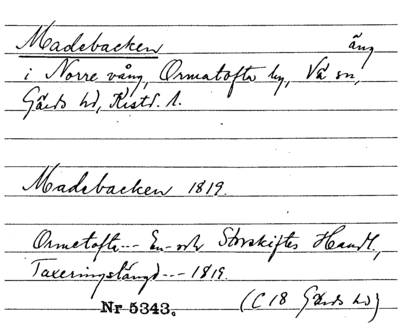 Madebacken äng
i Norre vång, Ormatofta by, Vä sn,
Gärds hd, Kristd. l.
Madebacken 1819.
Ormetofta--- En- och Storskiftes Handl.,
Taxeringslängd --- 1819.
Nr 5343. (C 18 Gärds hd)